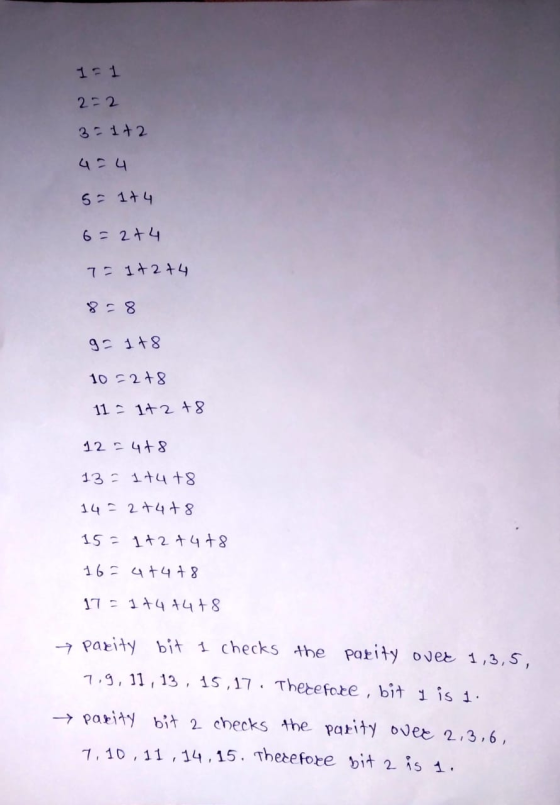 1 = 1
2 = 2
3 = 1+2
4 = 4
5 = 1+4
6 = 2+4
7 = 1+2+4
8 = 8
9 = 1+8
10 = 2+8
11 = 1+2+8
12 = 4+8
13 = 1+4+8
14 = 2+4+8
15 = 1+2+4+8
16 = 4+4+8
17 = 1+4+4+8
→ parity bit 1 checks the parity over 1,3,5,
7,9,11,13,15,17. Therefore, bit 1 is 1.
→ parity bit 2 checks the parity over 2,3,6,
7,10,11,14,15. Therefore bit 2 is 1.